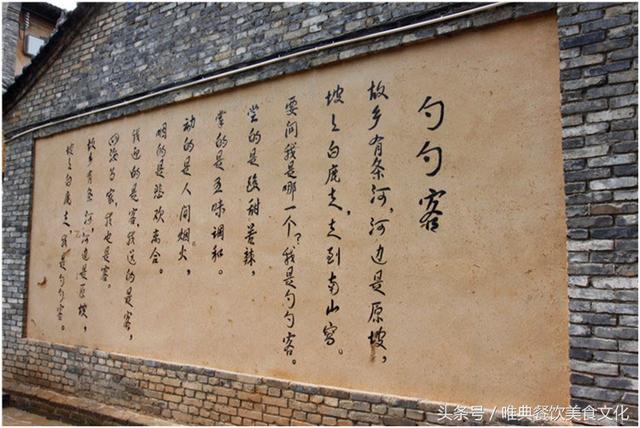 勺勺客
故乡有条河,河边是原坡,
坡上白鹿走,走到南山窝。
要问我是哪一个?我是勺勺客。
尝的是酸甜苦辣,
掌的是五味调和。
动的是人间烟火,
唱的是悲欢离合。
我迎的是客,我送的是客,
四海为家,我也是客。
故乡有条河,河边是原坡,
坡上白鹿走,我是勺勺客。
头条号/唯典餐饮美食文化